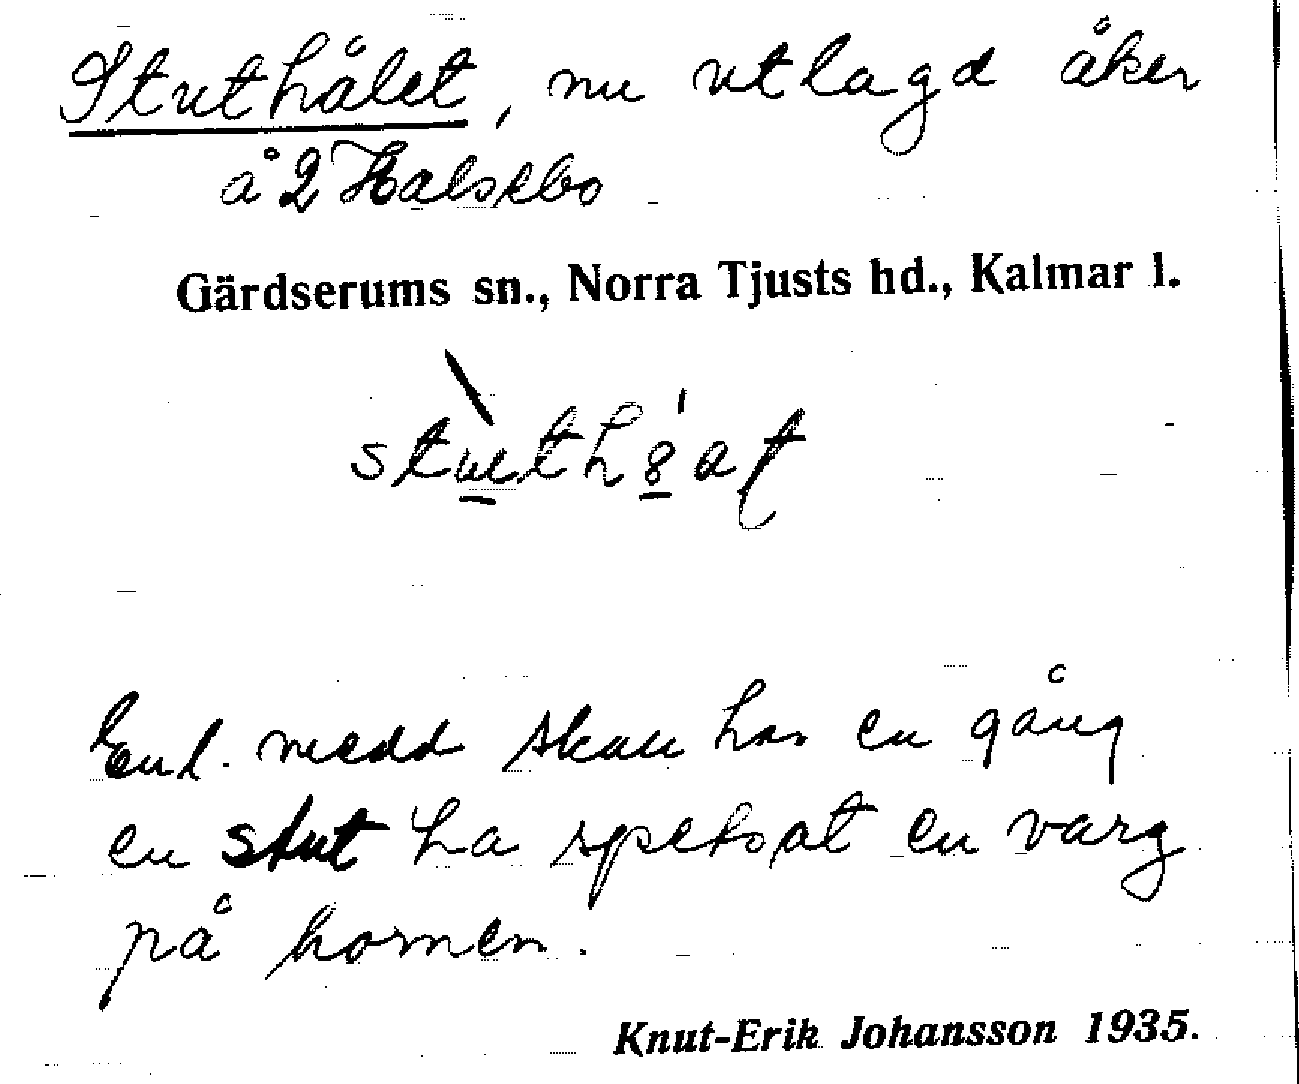 Stuthålet, nu utlagd åker
å 2 Halsebo
Gärdserums sn., Norra Tjusts hd., Kalmar l.
Enl. medd skall här en gång
en stut ha spetsat en varg
på hornen.
Knut-Erik Johansson 1935.